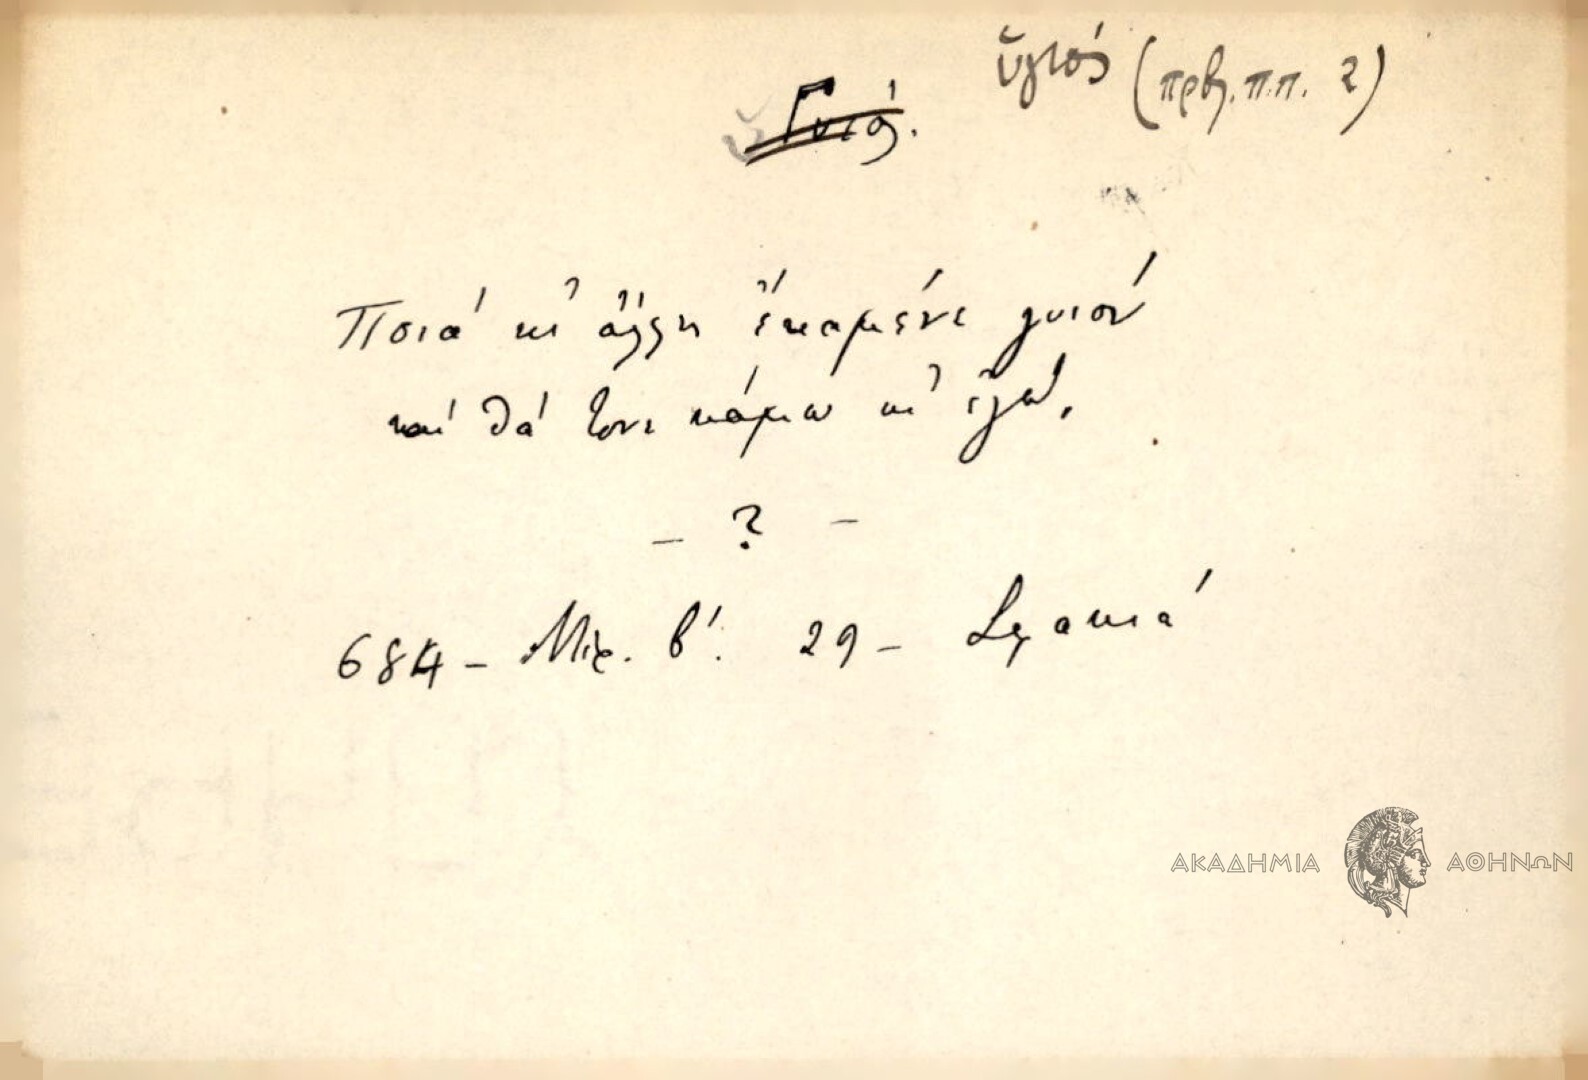 ὕγιός (πρβ. π.π. 2)
Γυιός.
Ποιά κι' ἄλλη ἔκαμένε γυιόν
καί θά τονε κάμω κι' ἐγώ,
- ? -
684 - Μιχ. β'. 29 - Σφακιά
ΑΚΑΔΗΜΙΑ ΑΘΗΝΩΝ